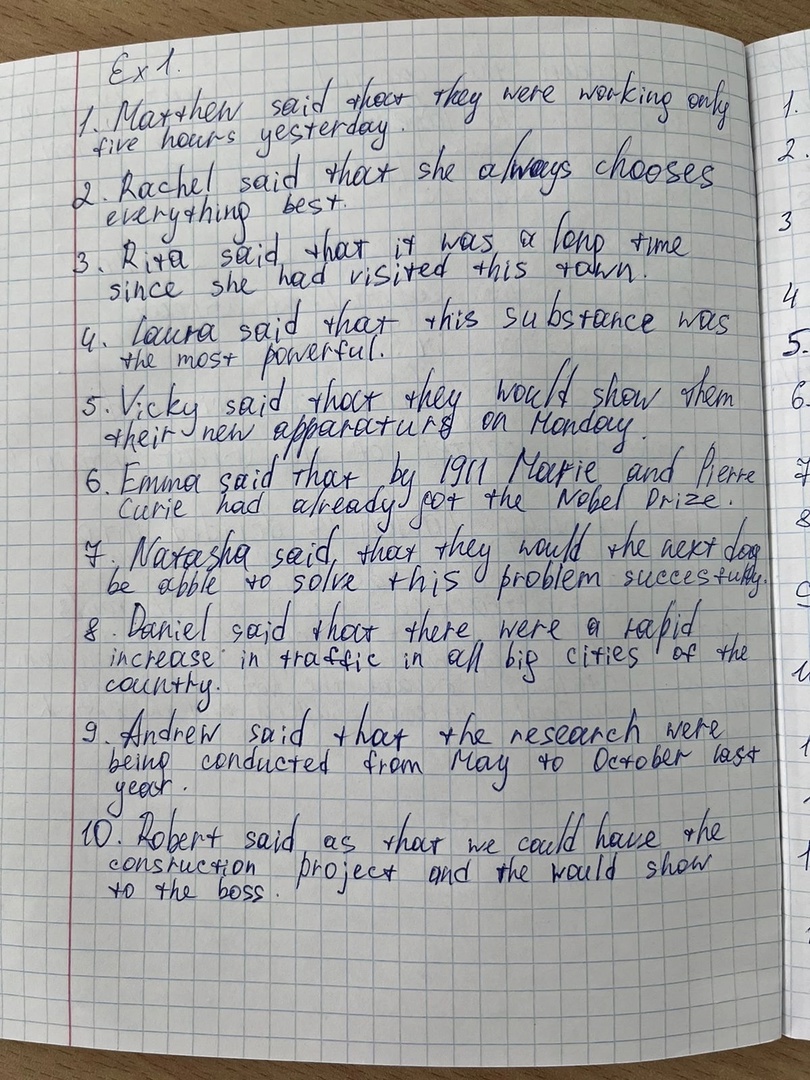 Ex 1.
1. Matthew said that they were working only
five hours yesterday.
2. Rachel said that she always chooses
everything best.
3. Rita said, that it was a long time
since she had visited this town.
4. Laura said that this substance was
the most powerful.
5. Vicky said that they would show them
their new apparaturs on Monday.
6. Emma said that by 1911 Marie and Pierre
Curie had already got the Nobel Prize.
7. Natasha said, that they would the next day
be abble to solve this problem succesfully.
8. Daniel said that there were a rapid
increase in traffic in all big cities of the
country.
9. Andrew said that the research were
being conducted from May to October last
year.
10. Robert said as that we could have the
consruction project and the would show
to the boss.
1.
2.
3
4
5.
6.
7
8